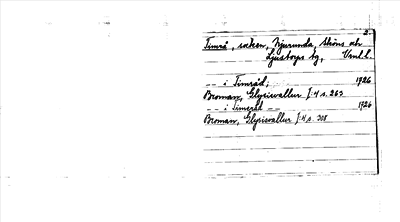 2.
Timrå, socken, Njurunda, Sköns och
Ljustorps tg, Vnl.l.
-- i Timråd; 1726
Broman, Glysisvallur f:4 s. 263
-- i Timråd -- 1726
Broman, Glysisvallur f:4 s. 308